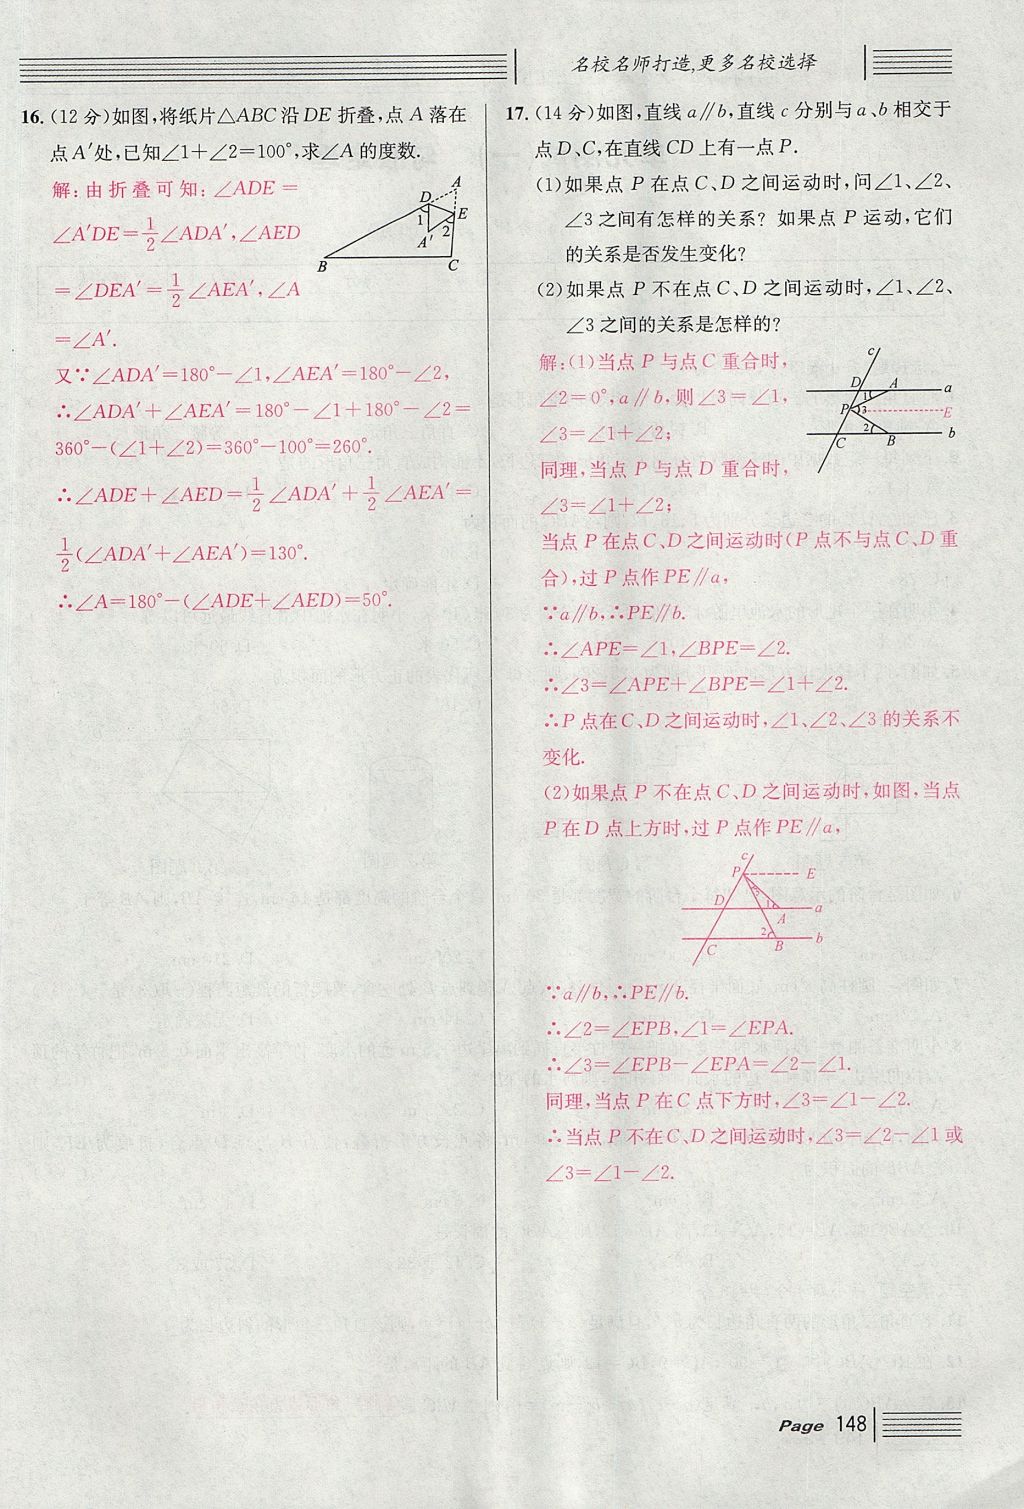 名校名师打造,更多名校选择
16.(12分)如图,将纸片△ABC沿DE折叠,点A落在
点A′处,已知∠1+∠2=100°,求∠A的度数.
解:由折叠可知:∠ADE=
∠A′DE=1/2∠ADA′,∠AED
=∠DEA′=1/2∠AEA′,∠A
=∠A′.
A
D
E
1
2
A′
B
C
又∵∠ADA′=180°-∠1,∠AEA′=180°-∠2,
∴∠ADA′+∠AEA′=180°-∠1+180°-∠2=
360°-(∠1+∠2)=360°-100°=260°.
∴∠ADE+∠AED=1/2∠ADA′+1/2∠AEA′=
1/2(∠ADA′+∠AEA′)=130°.
∴∠A=180°-(∠ADE+∠AED)=50°.
17.(14分)如图,直线a∥b,直线c分别与a、b相交于
点D、C,在直线CD上有一点P.
(1)如果点P在点C、D之间运动时,问∠1、∠2、
∠3之间有怎样的关系? 如果点P运动,它们
的关系是否发生变化?
(2)如果点P不在点C、D之间运动时,∠1、∠2、
∠3之间的关系是怎样的?
解:(1)当点P与点C重合时,
∠2=0°,a∥b,则∠3=∠1,
∠3=∠1+∠2;
同理,当点P与点D重合时,
∠3=∠1+∠2;
c
D
A
a
1
P
3
E
2
C
B
b
当点P在点C、D之间运动时(P点不与点C、D重
合),过P点作PE∥a,
∵a∥b,∴PE∥b.
∴∠APE=∠1,∠BPE=∠2.
∴∠3=∠APE+∠BPE=∠1+∠2.
∴P点在C、D之间运动时,∠1、∠2、∠3的关系不
变化.
(2)如果点P不在点C、D之间运动时,如图,当点
P在D点上方时,过P点作PE∥a,
c
P
E
3
D
1
a
A
2
b
C
B
∵a∥b,∴PE∥b.
∴∠2=∠EPB,∠1=∠EPA.
∴∠3=∠EPB-∠EPA=∠2-∠1.
同理,当点P在C点下方时,∠3=∠1-∠2.
∴当点P不在C、D之间运动时,∠3=∠2-∠1或
∠3=∠1-∠2.
Page 148